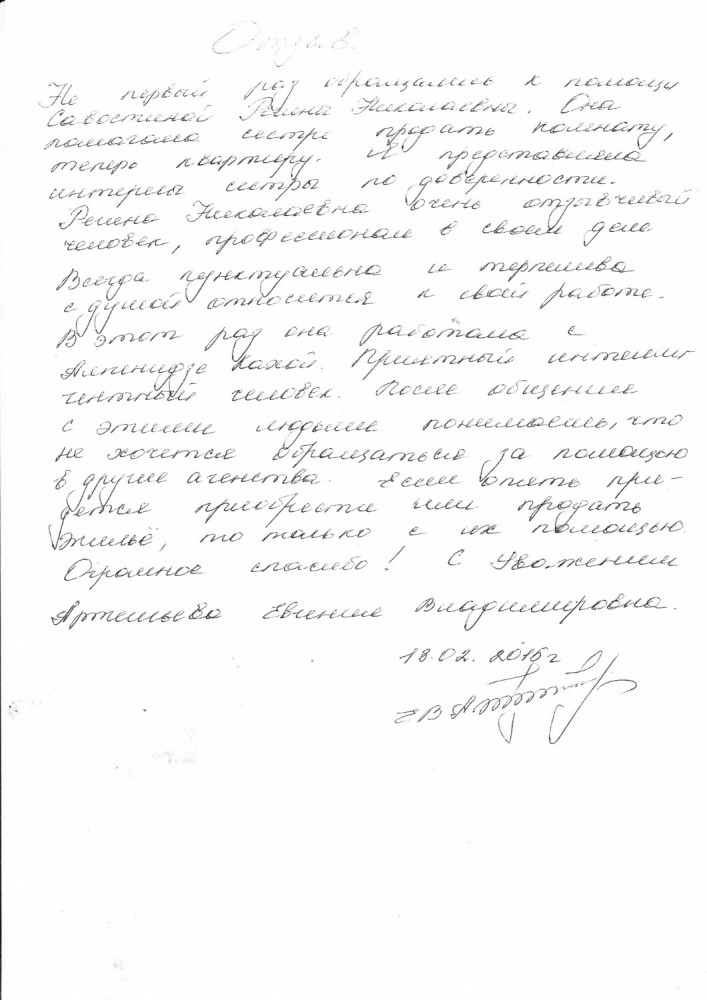 Отзыв.
Не первый раз обращались к помощи
Савостиной Регины Николаевны. Она
помагала сестре продать комнату,
теперь квартиру. Я представляла
интересы сестры по доверенности.
Регина Николаевна очень отзывчивый
человек, профессионал в своём деле
Всегда пунктуальна и терпелива
с душой относится к своей работе.
В этот раз она работала с
Кахой. Приятный интелли-
гентный человек. После общения
с этими людьми понимаешь, что
не хочется обращаться за помощью
в другие агенства. Если опять при-
дется приобрести или продать
жильё, то только с их помощью.
Огромное спасибо! С Уважением
Артемьева Евгения Владимировна.
18.02.2015г
ЕВ